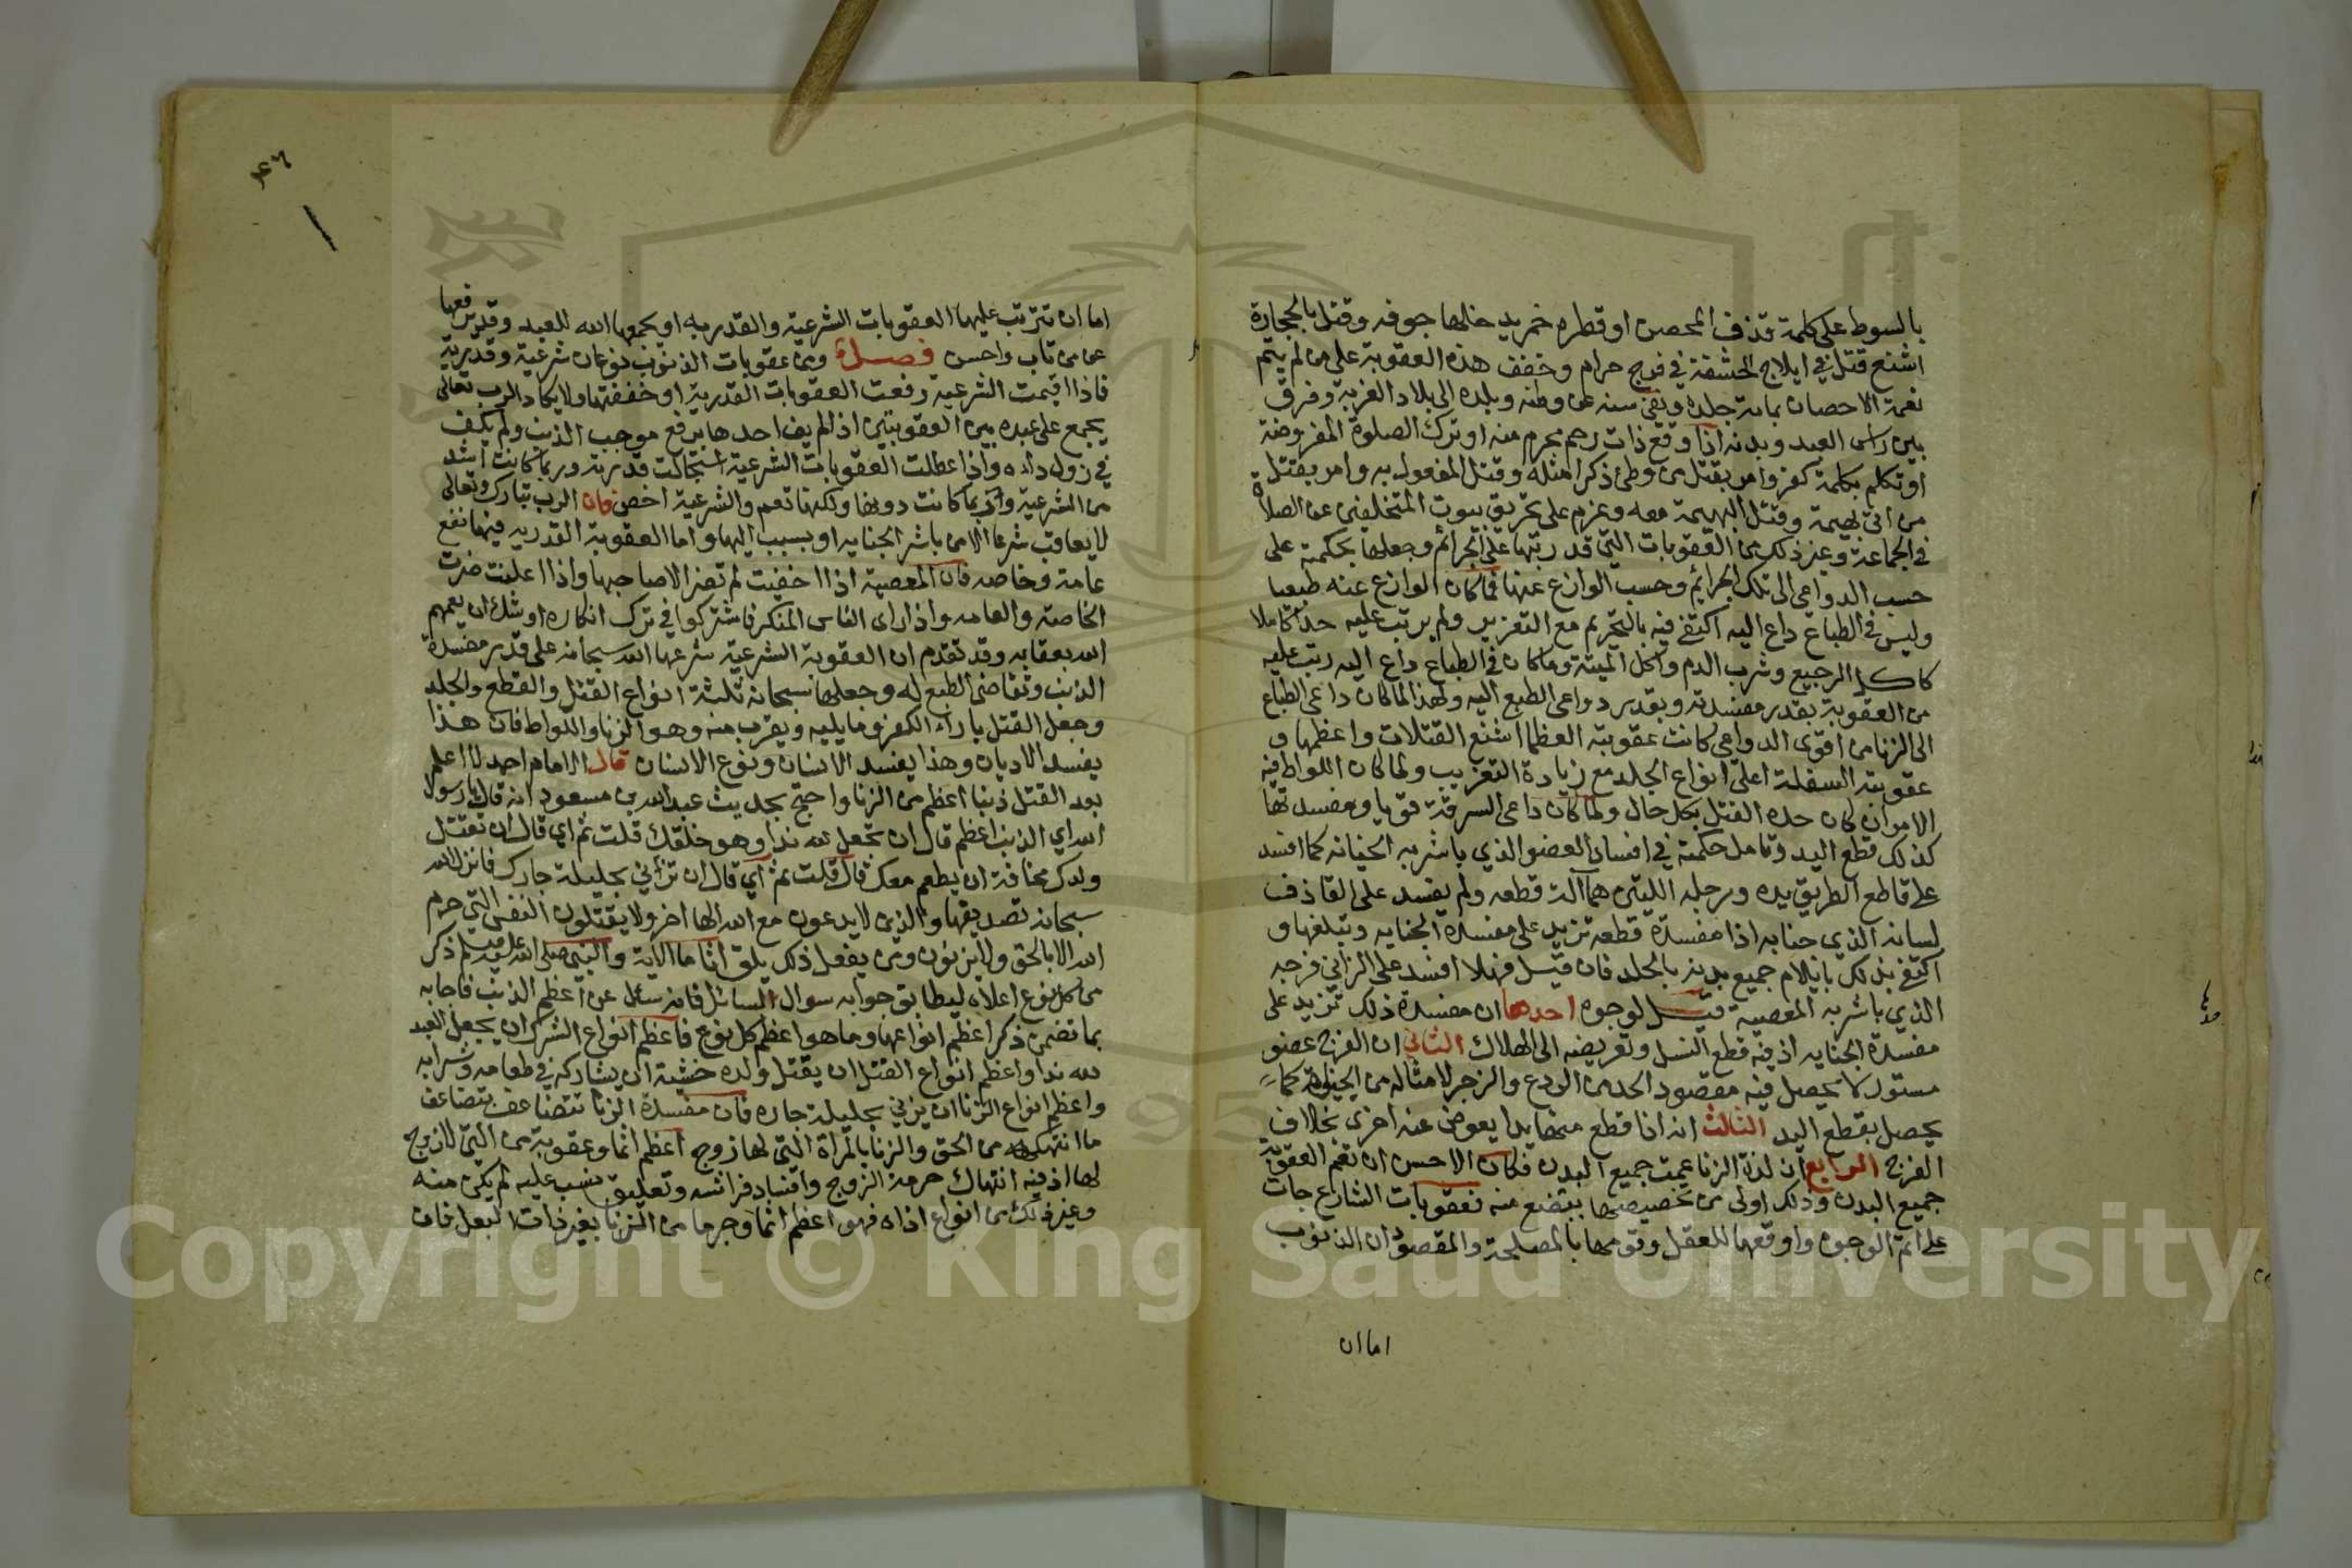 بالسوط على كلمة قذف المحصن او قطره خمر يدخلها جوفه وقتل بالحجارة
اشنع قتل في ايلاج الحشفة في فرج حرام وخفف هذه العقوبة على من لم يتم
نعمة الاحصان بماية جلدة ونفي سنه عن وطنه وبلده الى بلاد الغربة وفرق
بين راس العبد وبدنه اذا وقع ذات رحم محرم منه او ترك الصلوة المفروضة
او تكلم بكلمة كفر وامر بقتل من وطئ ذكرا مثله وقتل المفعول به وامر بقتل
من اتى بهيمة وقتل البهيمة معه وعزم على تحريق بيوت المتخلفين عن الصلاة
في الجماعة وغير ذلك من العقوبات التي قد رتبها على الجرائم وجعلها بحكمة على
حسب الدواعي الى تلك الجرائم وحسب الوازع عنها فما كان الوازع عنه طبعيا
وليس في الطباع داع اليه اكتفى فيه بالتحريم مع التعزير ولم يرتب عليه حدا كاملا
كاكل الرجيع وشرب الدم واكل الميتة وما كان في الطباع داع اليه رتب عليه
من العقوبة بقدر مفسدته وبقدر دواعي الطبع اليه ولهذا لما كان داعي الطباع
الى الزنا من اقوى الدواعي كانت عقوبته العظما اشنع القتلات واعظمها و
عقوبته السفلة اعلى انواع الجلد مع زيادة التغريب ولما كان اللواط فيه
الامران كان حده القتل بكل حال ولما كان داعي السرقة قويا ومفسدتها
كذلك قطع اليد وتامل حكمته في افساد العضو الذي باشر به الجنايه كما افسد
على قاطع الطريق يده ورجله اللتين هما آلة قطعه ولم يفسد على القاذف
لسانه الذي جنا به اذا مفسدة قطعه تزيد على مفسدة الجنايه وتبلغها و
اكتفى بذلك بايلام جميع بدنه بالجلد فان قيل فهلا افسد على الزاني فرجه
الذي باشر به المعصية قيل لوجوه احدها ان مفسدة ذلك تزيد على
مفسدة الجنايه اذ فيه قطع النسل وتعريضه الى الهلاك الثاني ان الفرج عضو
مستور لا يحصل فيه مقصود الحد من الردع والزجر لامثاله من الجناة كما
يحصل بقطع اليد الثالث انه اذا قطع منها يدا يعوض عنه اخرى بخلاف
الفرج الرابع ان لذة الزنا عمت جميع البدن فكان الاحسن ان تعم العقوبة
جميع البدن وذلك اولى من تخصيصها ببضع منه فعقوبات الشارع جات
على اتم الوجوه واوقعها للعقل وقومها بالمصلحة والمقصود ان الذنوب
اما ان
اما ان تترتب عليها العقوبات الشرعية والقدريه او يمحوها الله للعبد وقد يرفعها
عن من تاب واحسن فصل ومن عقوبات الذنوب نوعان شرعية وقدرية
فاذا اقيمت الشرعية رفعت العقوبات القدرية او خففتها ولا يكاد الرب تعالى
يجمع على عبده بين العقوبتين اذا لم يف احدها برفع موجب الذنب ولم يكف
في زول دائه واذا عطلت العقوبات الشرعية استحالت قدرية وربما كانت اشد
من الشرعية وربما كانت دونها ولكنها تعم والشرعية اخص فان الرب تبارك وتعالى
لا يعاقب شرعا الا من باشر الجنايه او بسبب اليها واما العقوبة القدريه فيها نفع
عامة وخاصه فان المعصية اذا اخفيت لم تضر الا صاحبها واذا اعلنت ضرت
الخاصة والعامه واذا راى الناس المنكر فاشتركوا في ترك انكاره اوشك ان يعمهم
الله بعقابه وقد تقدم ان العقوبة الشرعية شرعها الله سبحانه على قدر مفسدة
الذنب وتقاضى الطبع له وجعلها سبحانه ثلثة انواع القتل والقطع والجلد
وجعل القتل بازاء الكفر وما يليه ويقرب منه وهو الزنا واللواط فان هذا
يفسد الاديان وهذا يفسد الانسان ونوع الانسان قال الامام احمد لا اعلم
بعد القتل ذنبا اعظم من الزنا واحتج بحديث عبد الله بن مسعود انه قال يا رسول
الله اي الذنب اعظم قال ان تجعل لله ندا وهو خلقك قلت ثم اي قال ان تقتل
ولدك مخافة ان يطعم معك قال قلت ثم اي قال ان تزاني بحليلة جارك فانزل الله
سبحانه تصديقها والذين لا يدعون مع الله الها اخر ولا يقتلون النفس التي حرم
الله الا بالحق ولا يزنون ومن يفعل ذلك يلق اثاما الاية والنبي صلى الله عليه وسلم ذكر
من كل نوع اعلاه ليطابق جوابه سوال السائل فانه سئل عن اعظم الذنب فاجابه
بما تضمن ذكر اعظم انواعها وما هو اعظم كل نوع فاعظم انواع الشرك ان يجعل العبد
لله ندا واعظم انواع القتل ان يقتل ولده خشية ان يشاركه في طعامه وشرابه
واعظم انواع الزنا ان يزني بحليلة جاره فان مفسدة الزنا تتضاعف بتضاعف
ما انتهكه من الحق والزنا بالمراة التي لها زوج اعظم اثما وعقوبة من التي لا زوج
لها اذ فيه انتهاك حرمة الزوج وافساد فراشه وتعليق نسب عليه لم يكن منه
وغير ذلك من انواع اذاه فهو اعظم اثما وجرما من الزنا بغير ذات البعل فان
Copyright © King Saud University